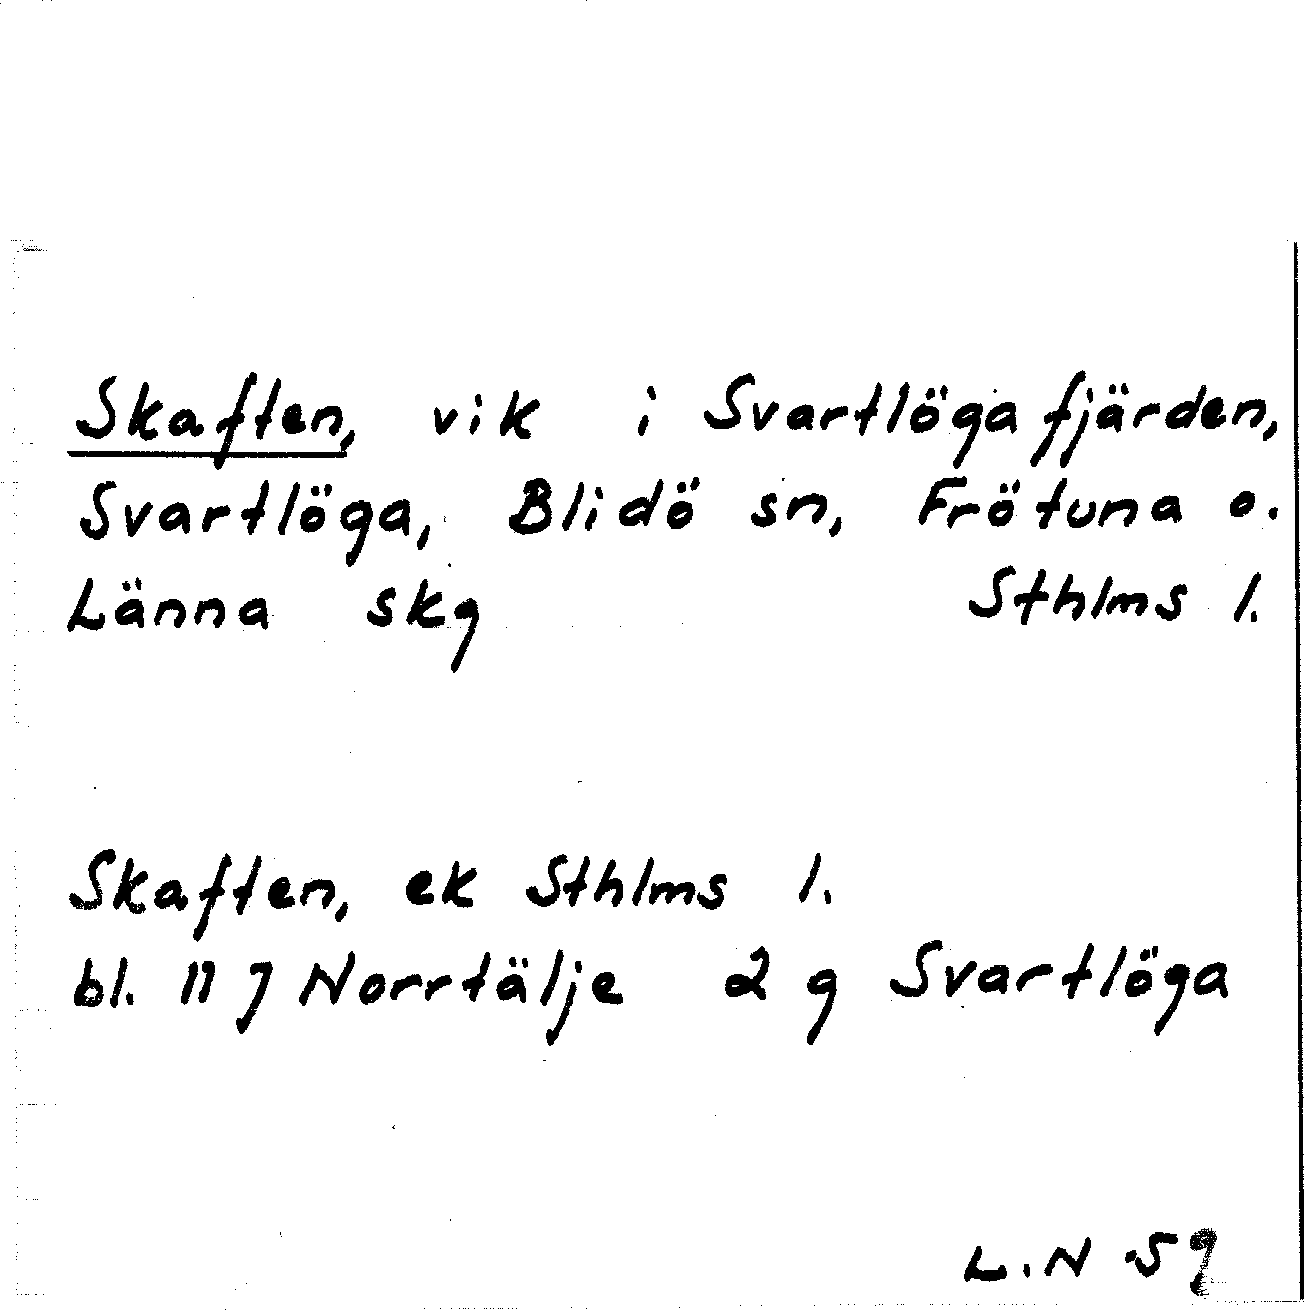 Skaften, vik i Svartlögafjärden,
Svartlöga, Blidö sn, Frötuna o.
Länna skg Sthlms l.
Skaften, ek Sthlms l.
bl. 11 J Norrtälje 2 g Svartlöga
L.N 59